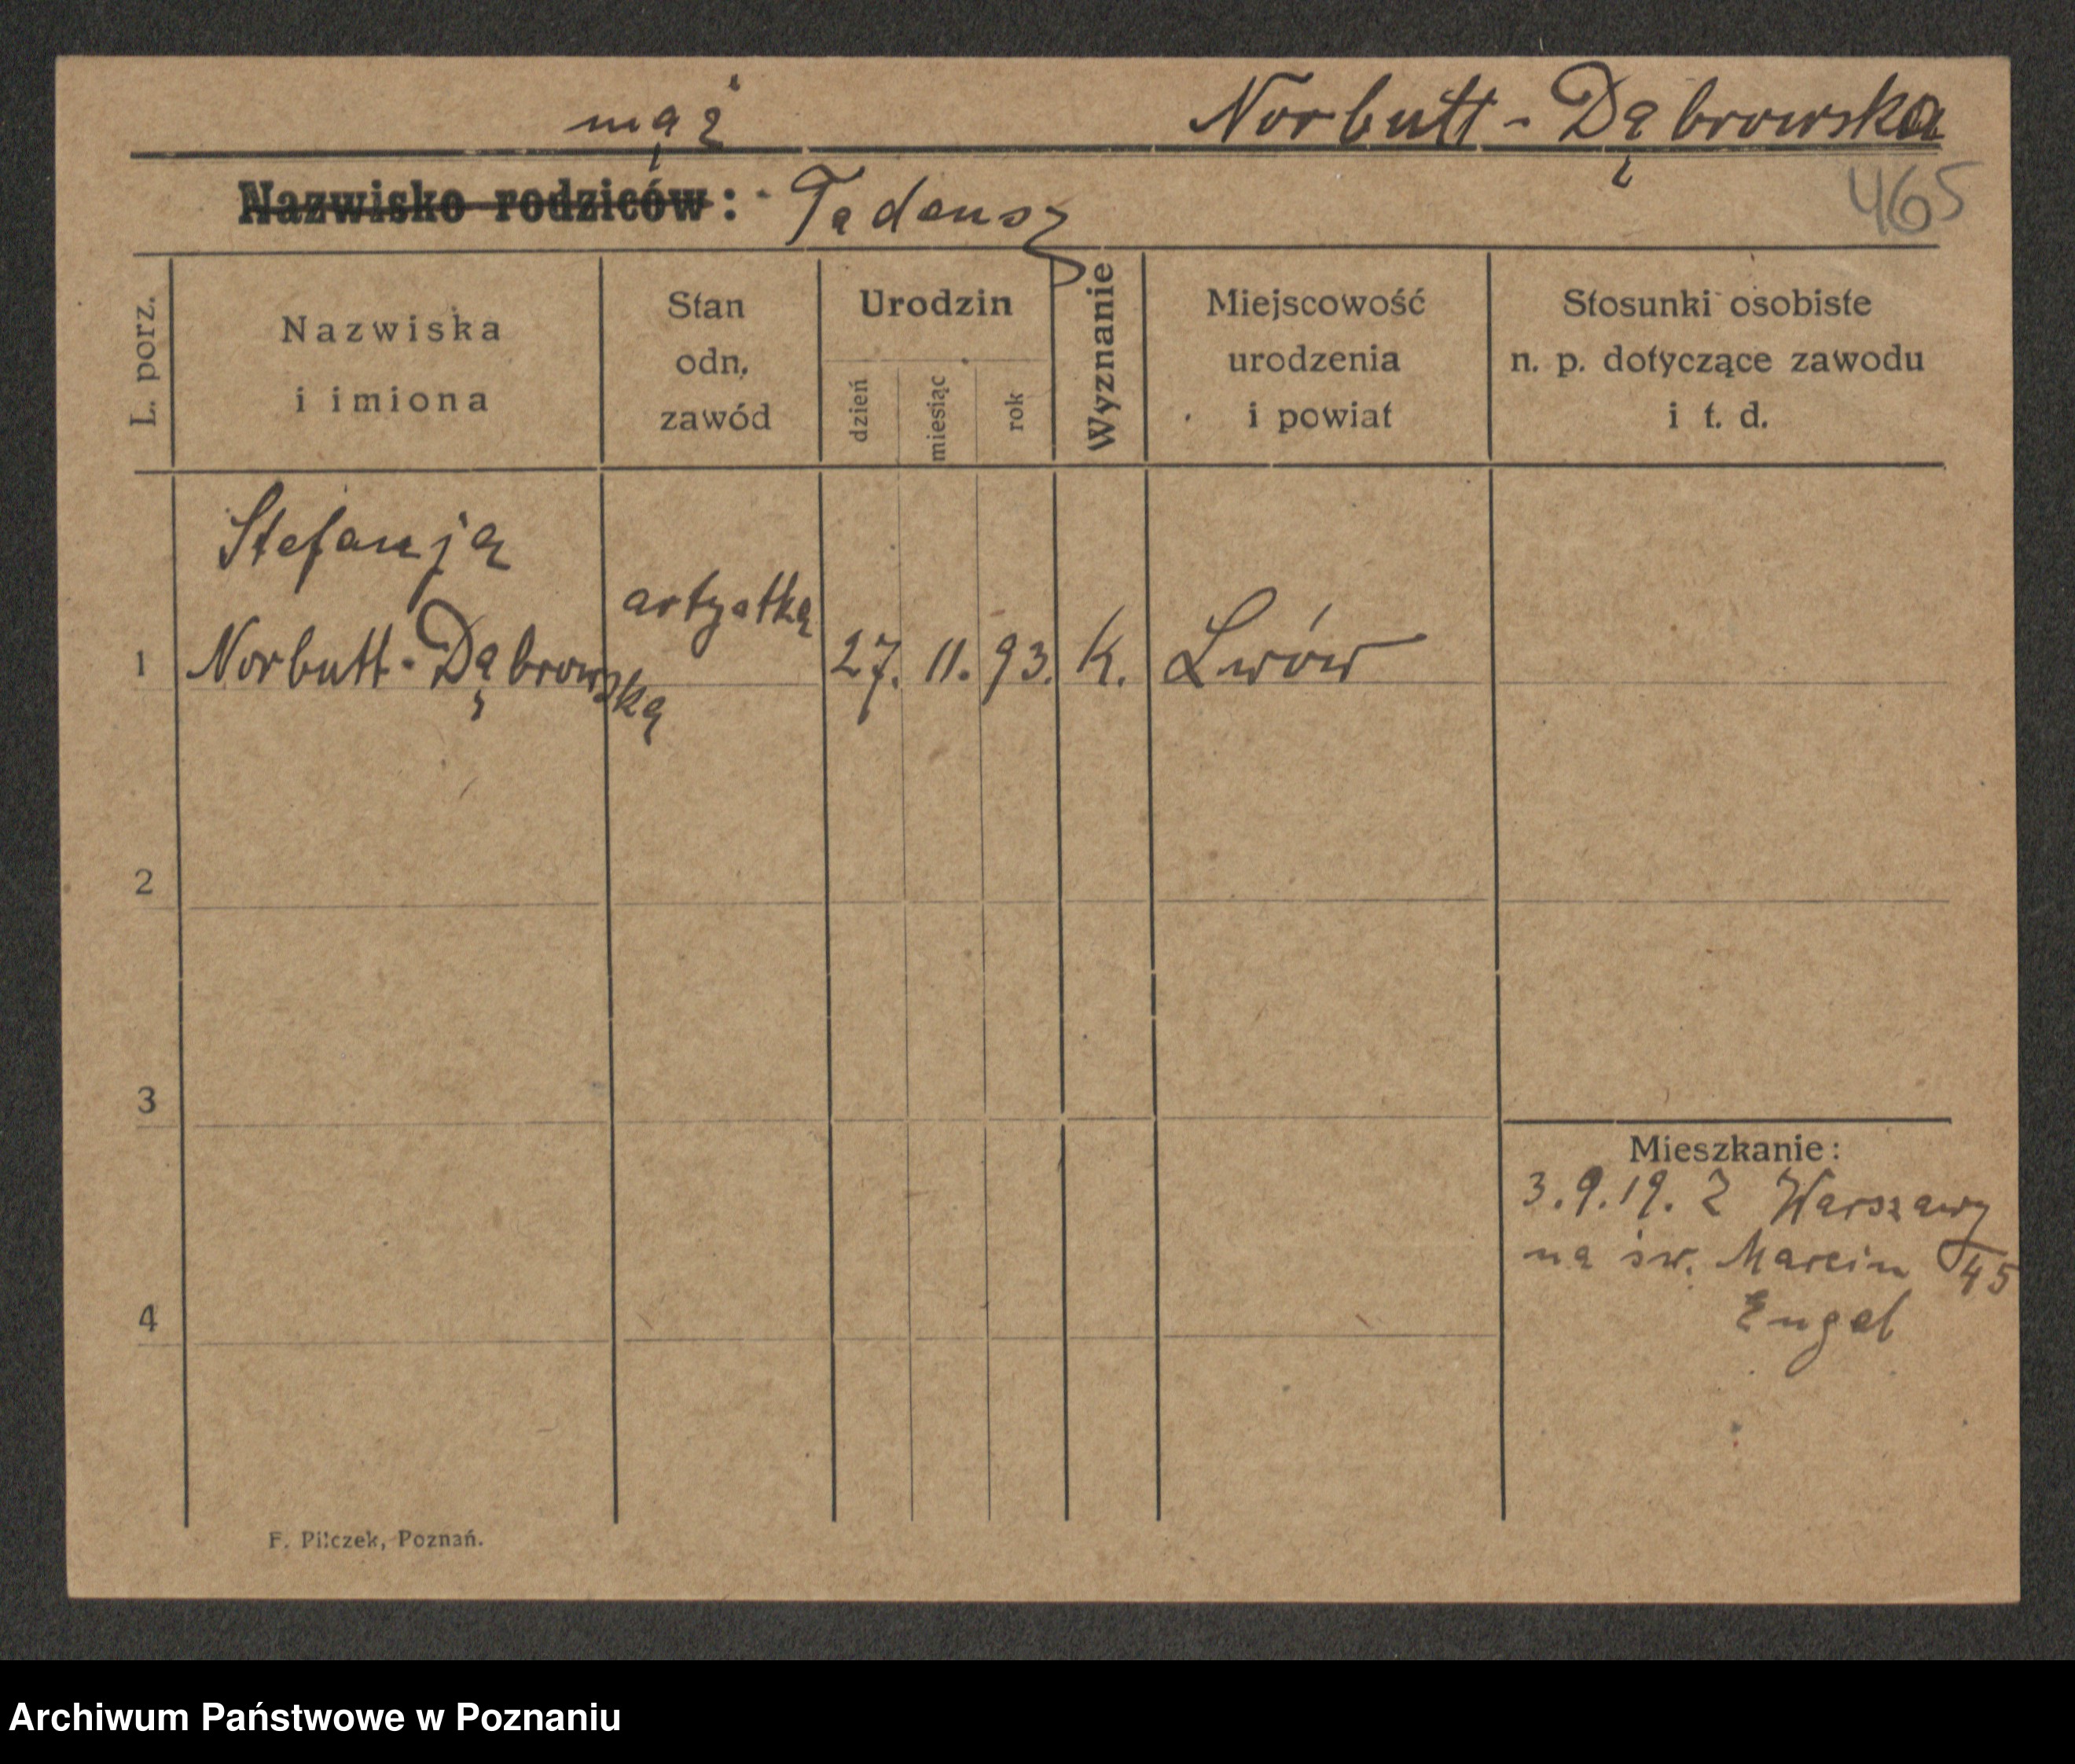 mąż Norbutt-Dąbrowska
Nazwisko rodziców: Tadeusz
465
L. porz.
Nazwiska
i imiona
Stan
odn.
zawód
Urodzin
dzień
miesiąc
rok
Wyznanie
Miejscowość
urodzenia
i powiat
Stosunki osobiste
n. p. dotyczące zawodu
i t. d.
Stefanja
artystka
1 Norbutt-Dąbrowska 27. 11. 93. K. Lwów
2
3
Mieszkanie:
3.9.19. Z Warszawy
na św. Marcin 45
Engel
4
F. Pilczek, Poznań.
Archiwum Państwowe w Poznaniu